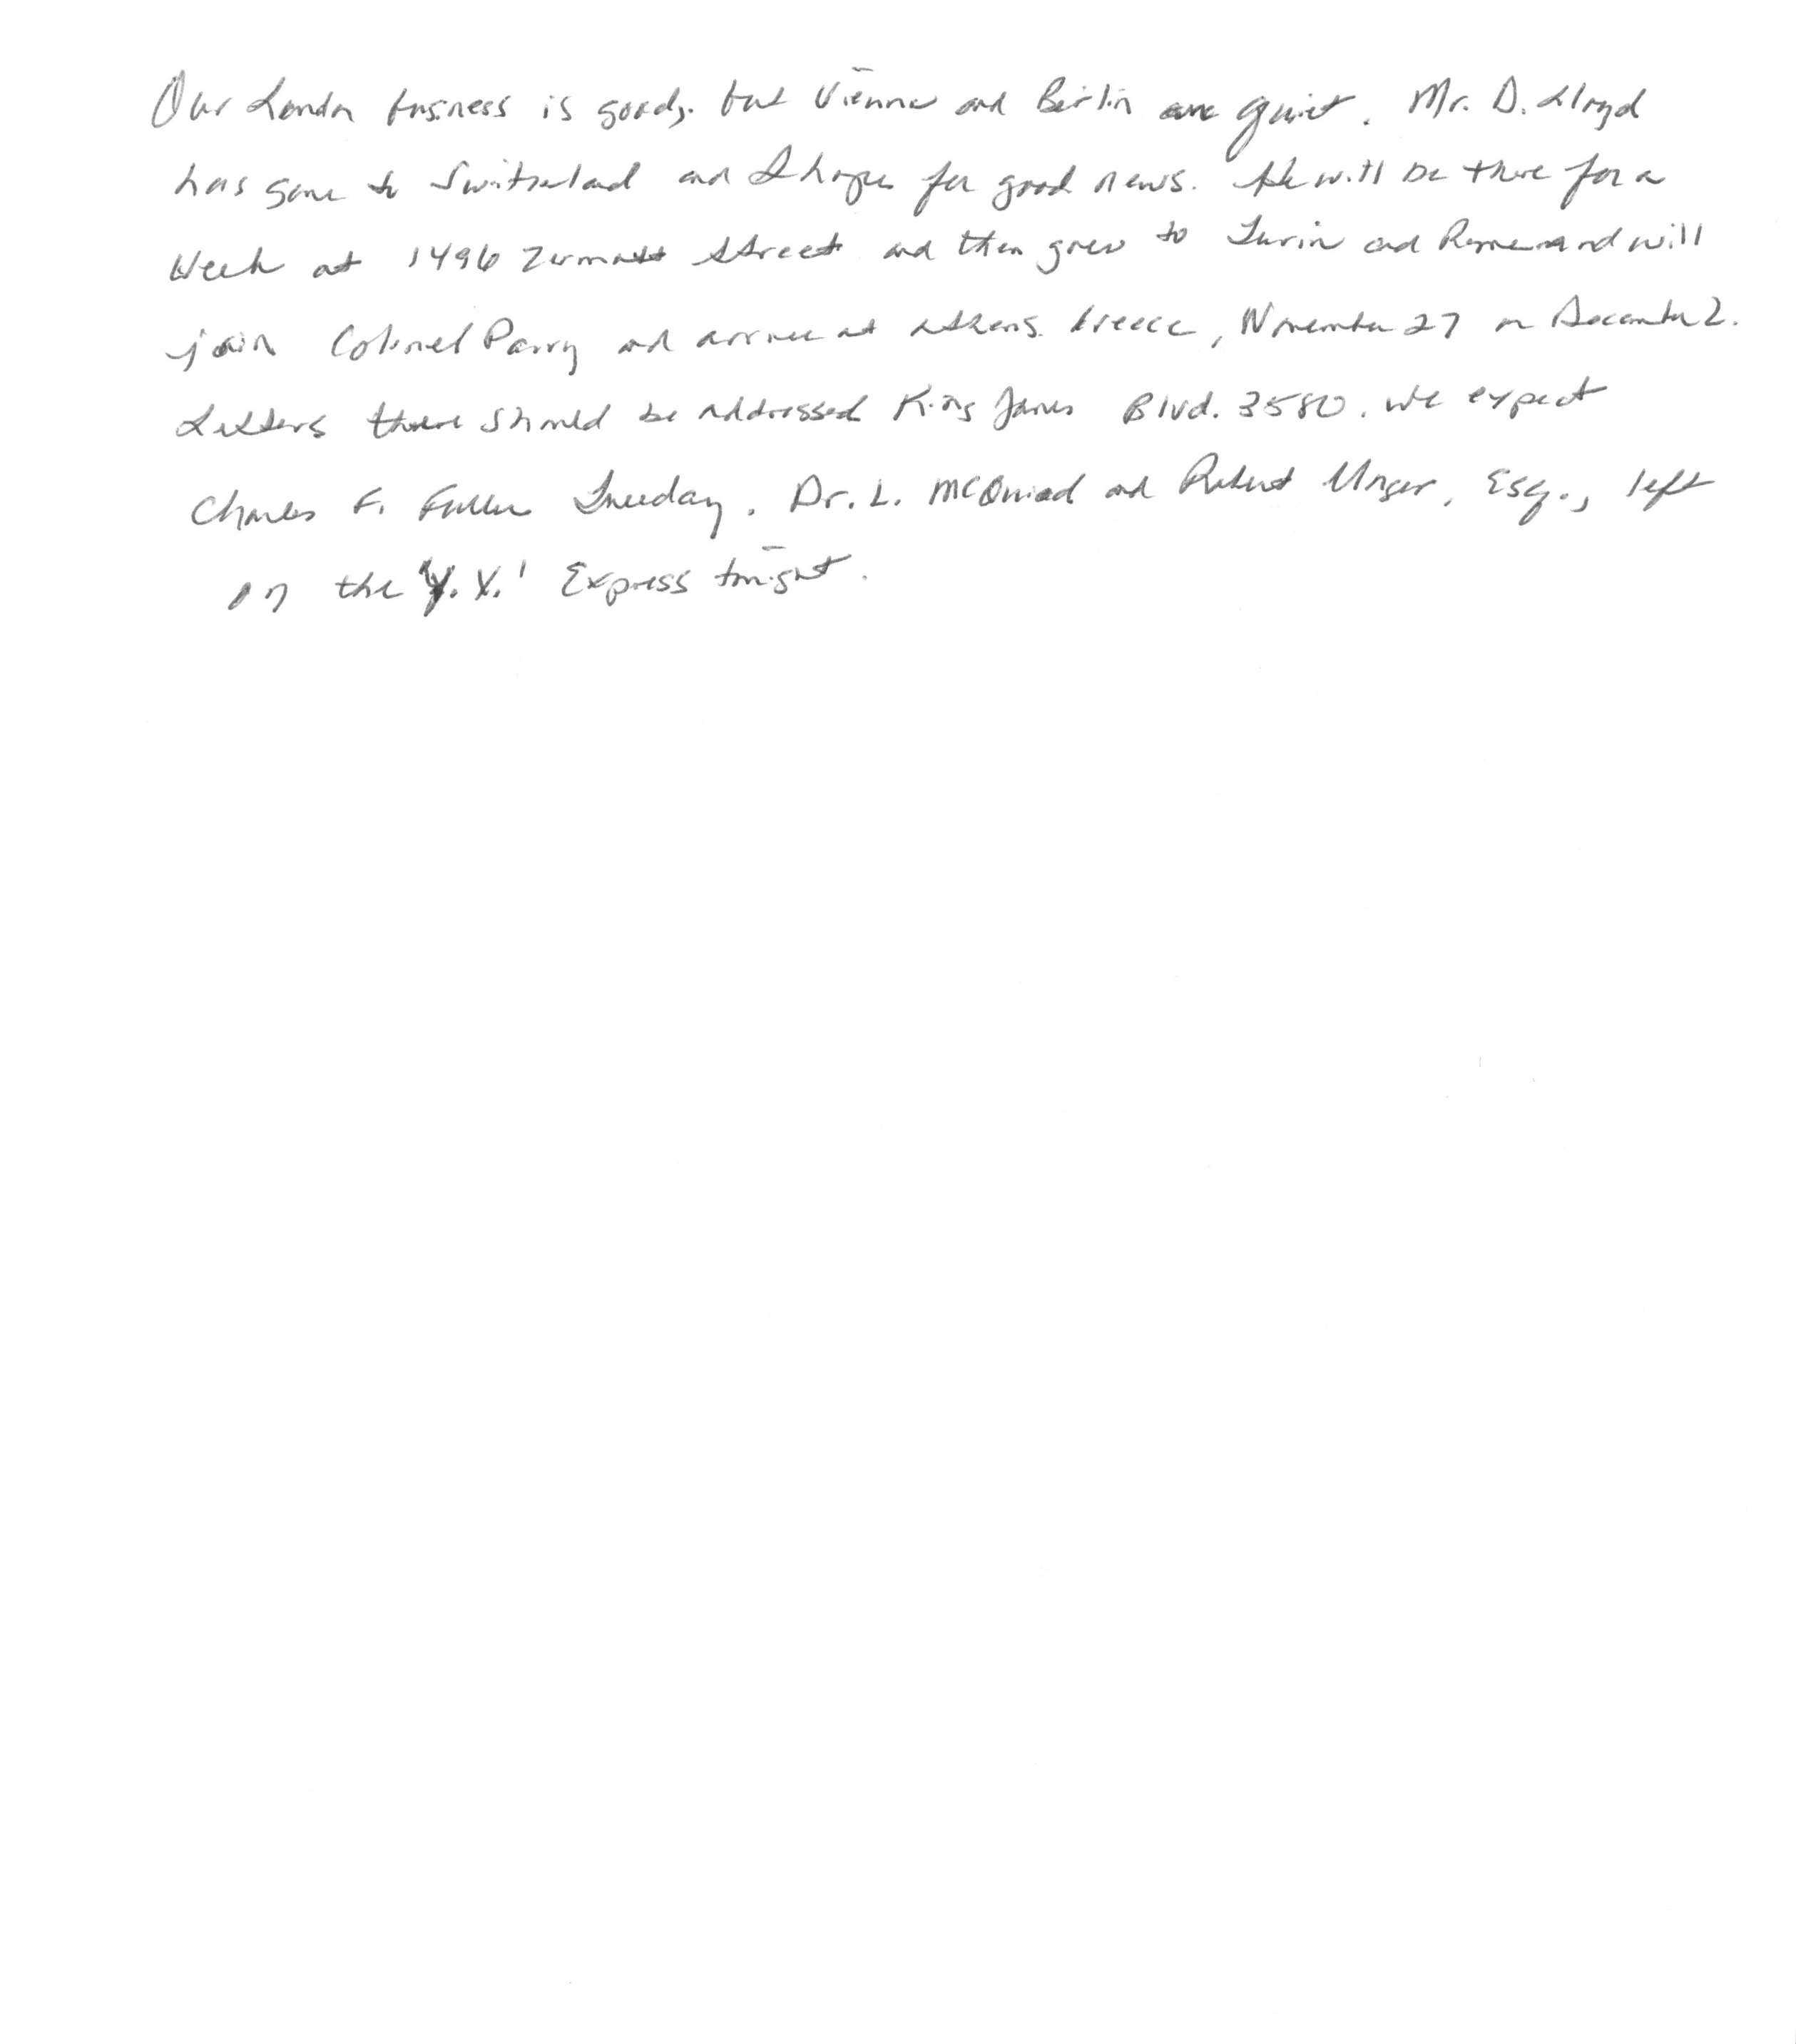 Our London business is good, but Vienna and Berlin are quiet. Mr. D. Lloyd
has gone to Switzerland and I hope for good news. He will be there for a
week at 1496 Zermott Street and then goes to Turin and Rome and will
join Colonel Parry and arrive at Athens, Greece, November 27 or December 2.
Letters there should be addressed King James Blvd. 3580. We expect
Charles F. Fuller Tuesday. Dr. L. McQuaid and Robert Unger, Esq., left
on the 'Y.X.' Express tonight.